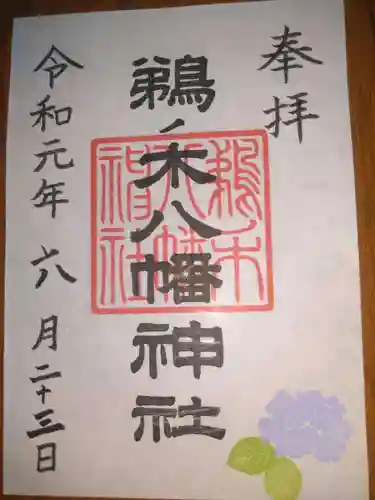 奉拝
鵜ノ木八幡神社
令和元年六月二十三日
鵜ノ木
八幡
神社